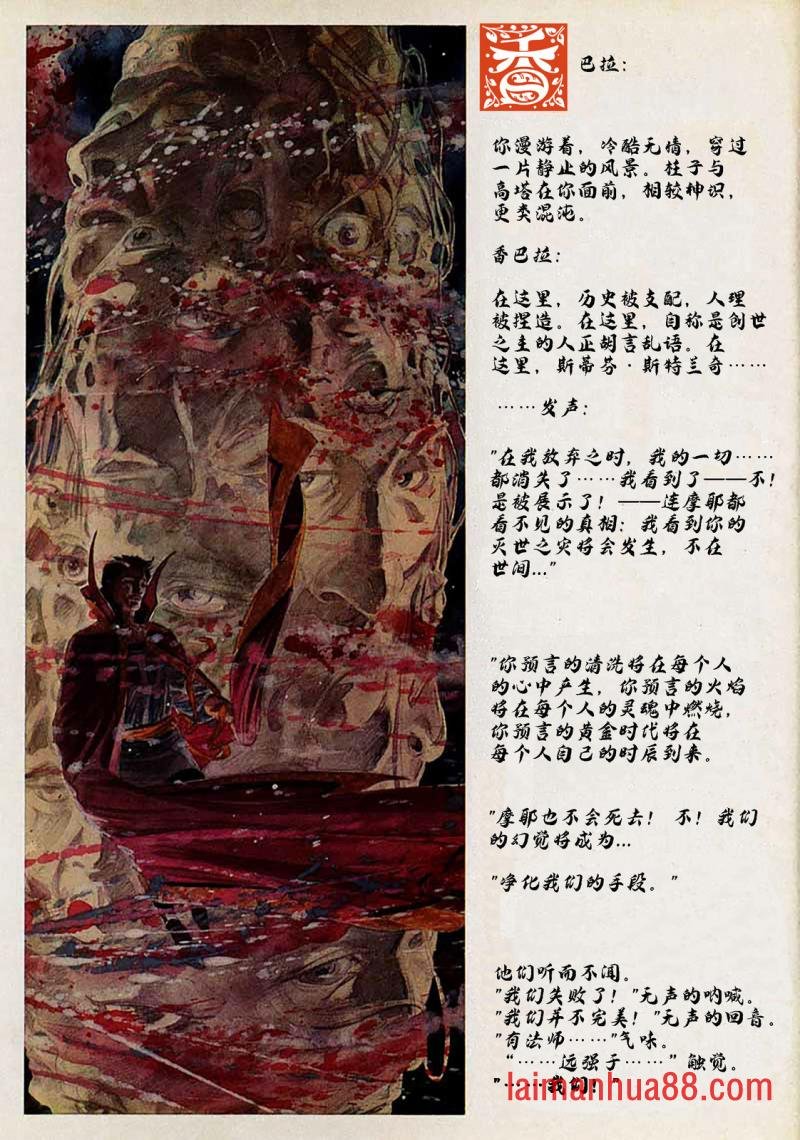 香巴拉：
你漫游着，冷酷无情，穿过
一片静止的风景。柱子与
高塔在你面前，相较神识，
更类混沌。
香巴拉：
在这里，历史被支配，人理
被捏造。在这里，自称是创世
之主的人正胡言乱语。在
这里，斯蒂芬·斯特兰奇……
……发声：
"在我放弃之时，我的一切……
都消失了……我看到了——不！
是被展示了！——连摩耶都
看不见的真相：我看到你的
灭世之灾将会发生，不在
世间..."
"你预言的清洗将在每个人
的心中产生，你预言的火焰
将在每个人的灵魂中燃烧，
你预言的黄金时代将在
每个人自己的时辰到来。
"摩耶也不会死去！不！我们
的幻觉将成为...
"净化我们的手段。"
他们听而不闻。
"我们失败了！"无声的呐喊。
"我们并不完美！"无声的回音。
"有法师……"气味。
“……远强于……”触觉。
"……我们！"
laimanhua88.com